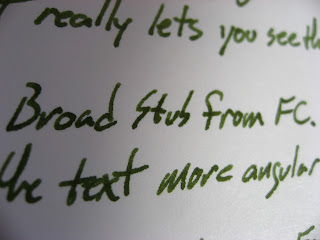 really lets you see th
Broad Stub from FC.
the text more angular